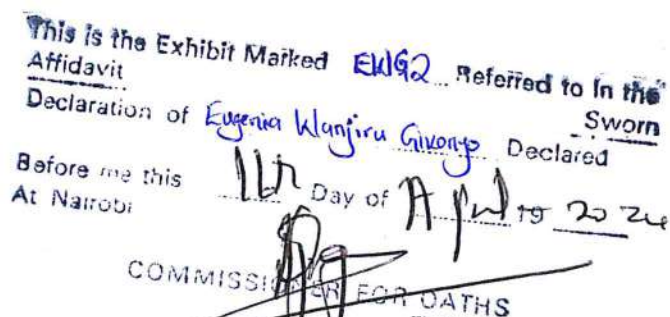 This is the Exhibit Marked EWG2 Referred to in the
Affidavit Sworn
Declaration of Eugenia Wanjiru Declared
Before me this Day of April 19 20
At Nairobi
COMMISSIONER FOR OATHS